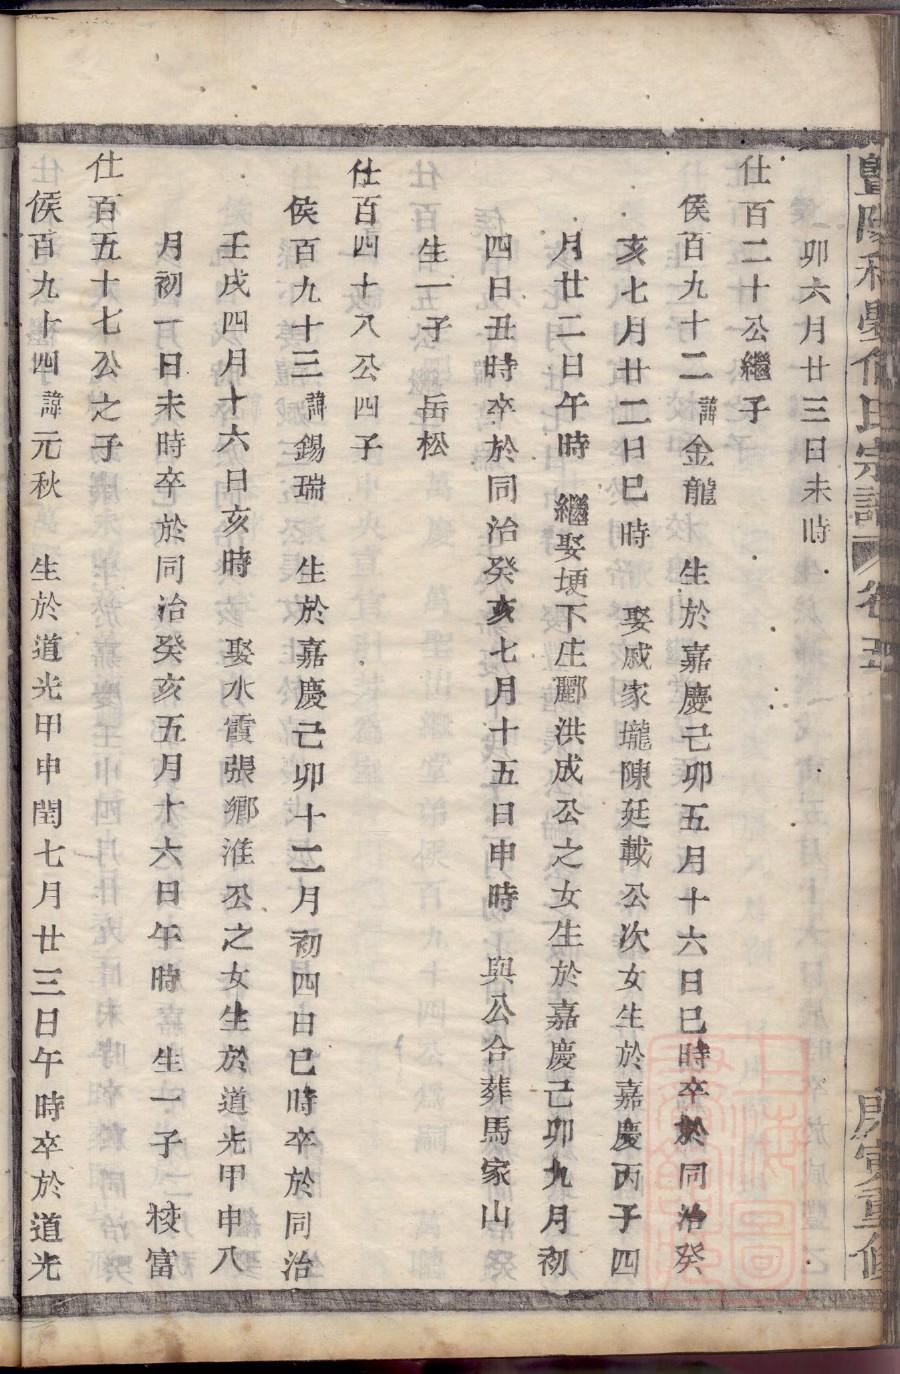 卯六月廿三日未時
仕百二十公繼子
侯百九十二諱金龍 生於嘉慶己卯五月十六日巳時卒於同治癸
亥七月廿二日巳時 娶戚家壠陳廷載公次女生於嘉慶丙子四
月廿二日午時 繼娶埂下庄酈洪成公之女生於嘉慶己卯九月初
四日丑時卒於同治癸亥七月十五日申時 與公合葬馬家山
生一子 岳松
仕百四十八公四子
侯百九十三諱錫瑞 生於嘉慶己卯十二月初四日巳時卒於同治
壬戌四月十六日亥時 娶水霞張鄉淮公之女生於道光甲申八
月初一日未時卒於同治癸亥五月十六日午時 生一子 校富
仕百五十七公之子
侯百九十四諱元秋 生於道光甲申閏七月廿三日午時卒於道光
氏宗譜 卷五